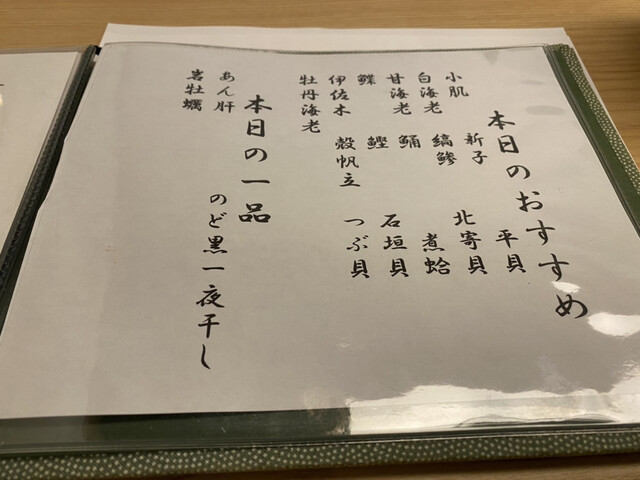 本日のおすすめ
小肌 新子 平貝
白海老 縞鯵 北寄貝
甘海老 鯒 煮蛤
鰈 鰹 石垣貝
伊佐木 殻帆立 つぶ貝
牡丹海老
本日の一品
あん肝 のど黒一夜干し
岩牡蠣